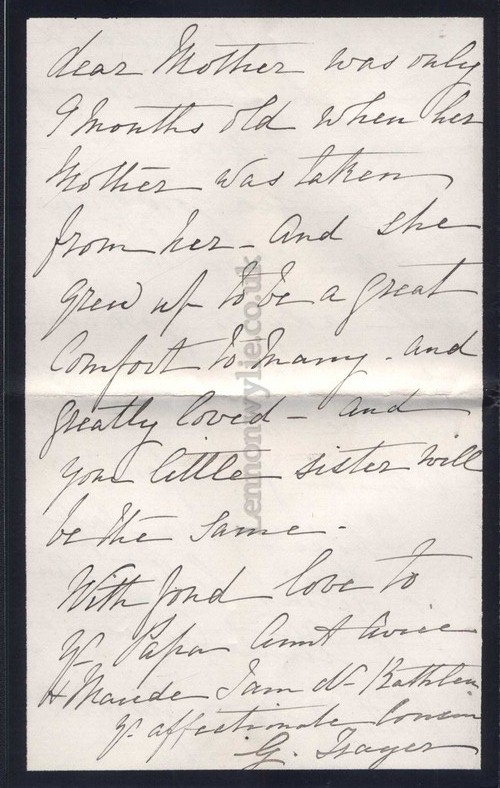 dear Mother was only
9 months old when her
Mother was taken
from her - And she
grew up to be a great
Comfort to many - and
greatly loved - and
your little sister will
be the same -
With fond love to
yr Papa Aunt Avice
& Maude I am dr Kathleen
yr affectionate Cousin
G.
Lennonwylie.co.uk